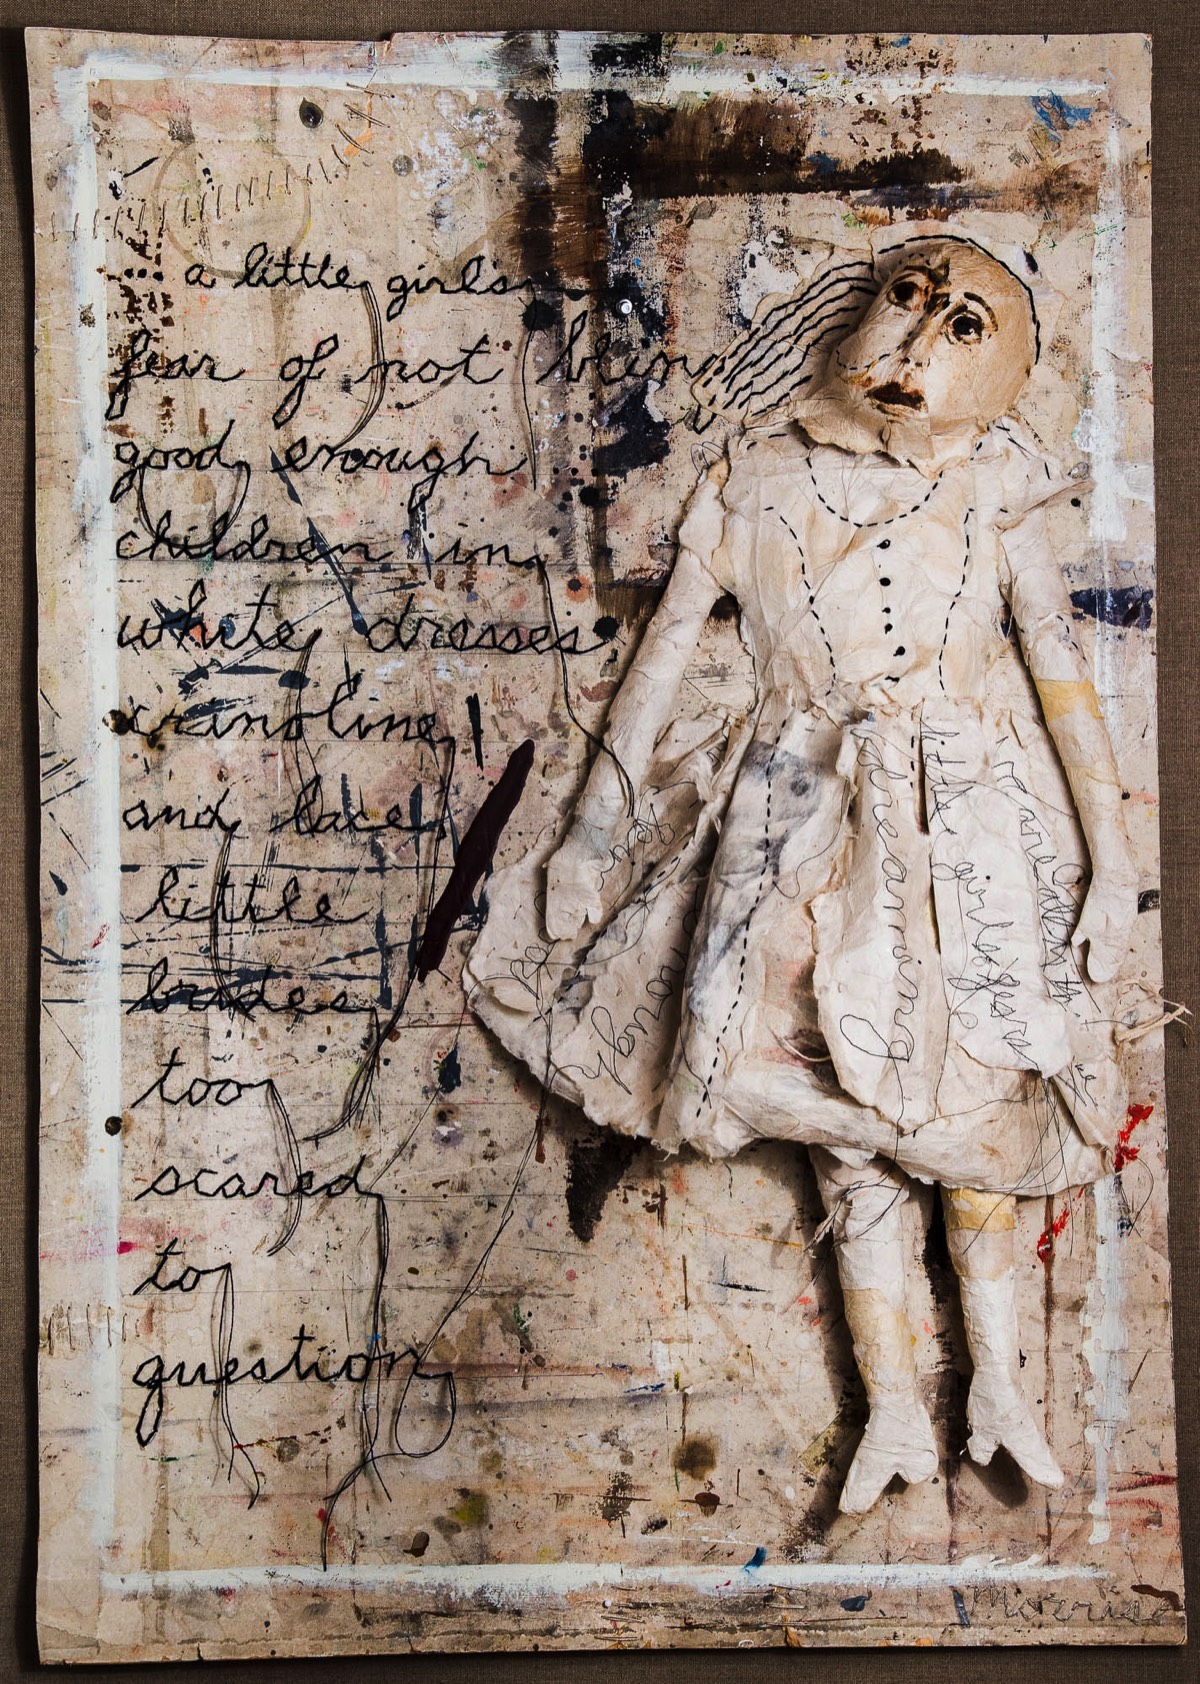 a little girl's
fear of not being
good enough
children in
white dresses
crinoline
and lace
little
brides
too
scared
to
question
enough
dreaming
little girls fears
Morris